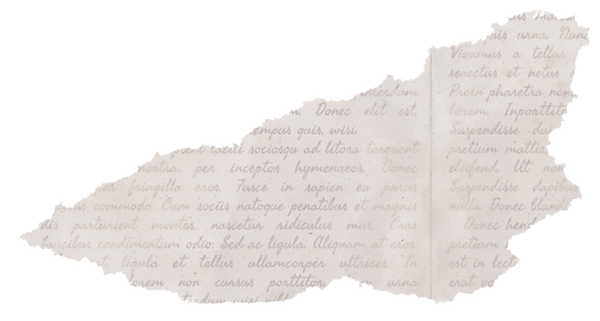 interdum
Donec elit est
tempus quis, wisi.
taciti sociosqu ad litora torquent
nostra, per inceptos hymenaeos. Donec
fringilla eros. Fusce in sapien eu purus
commodo. Cum sociis natoque penatibus et magnis
dis parturient montes, nascetur ridiculus mus. Cras
faucibus condimentum odio. Sed ac ligula. Aliquam at eros.
ligula et tellus ullamcorper ultrices. In
lorem non cursus porttitor, urna
wisi
quis urna. Nunc
Vivamus a tellus.
senectus et netus
Proin pharetra non
lorem. In porttitor
Suspendisse dui
pretium mattis,
eleifend. Ut non
Suspendisse dapibus
nulla. Donec blandit
Donec hend
pretium
est in lect
erat vo